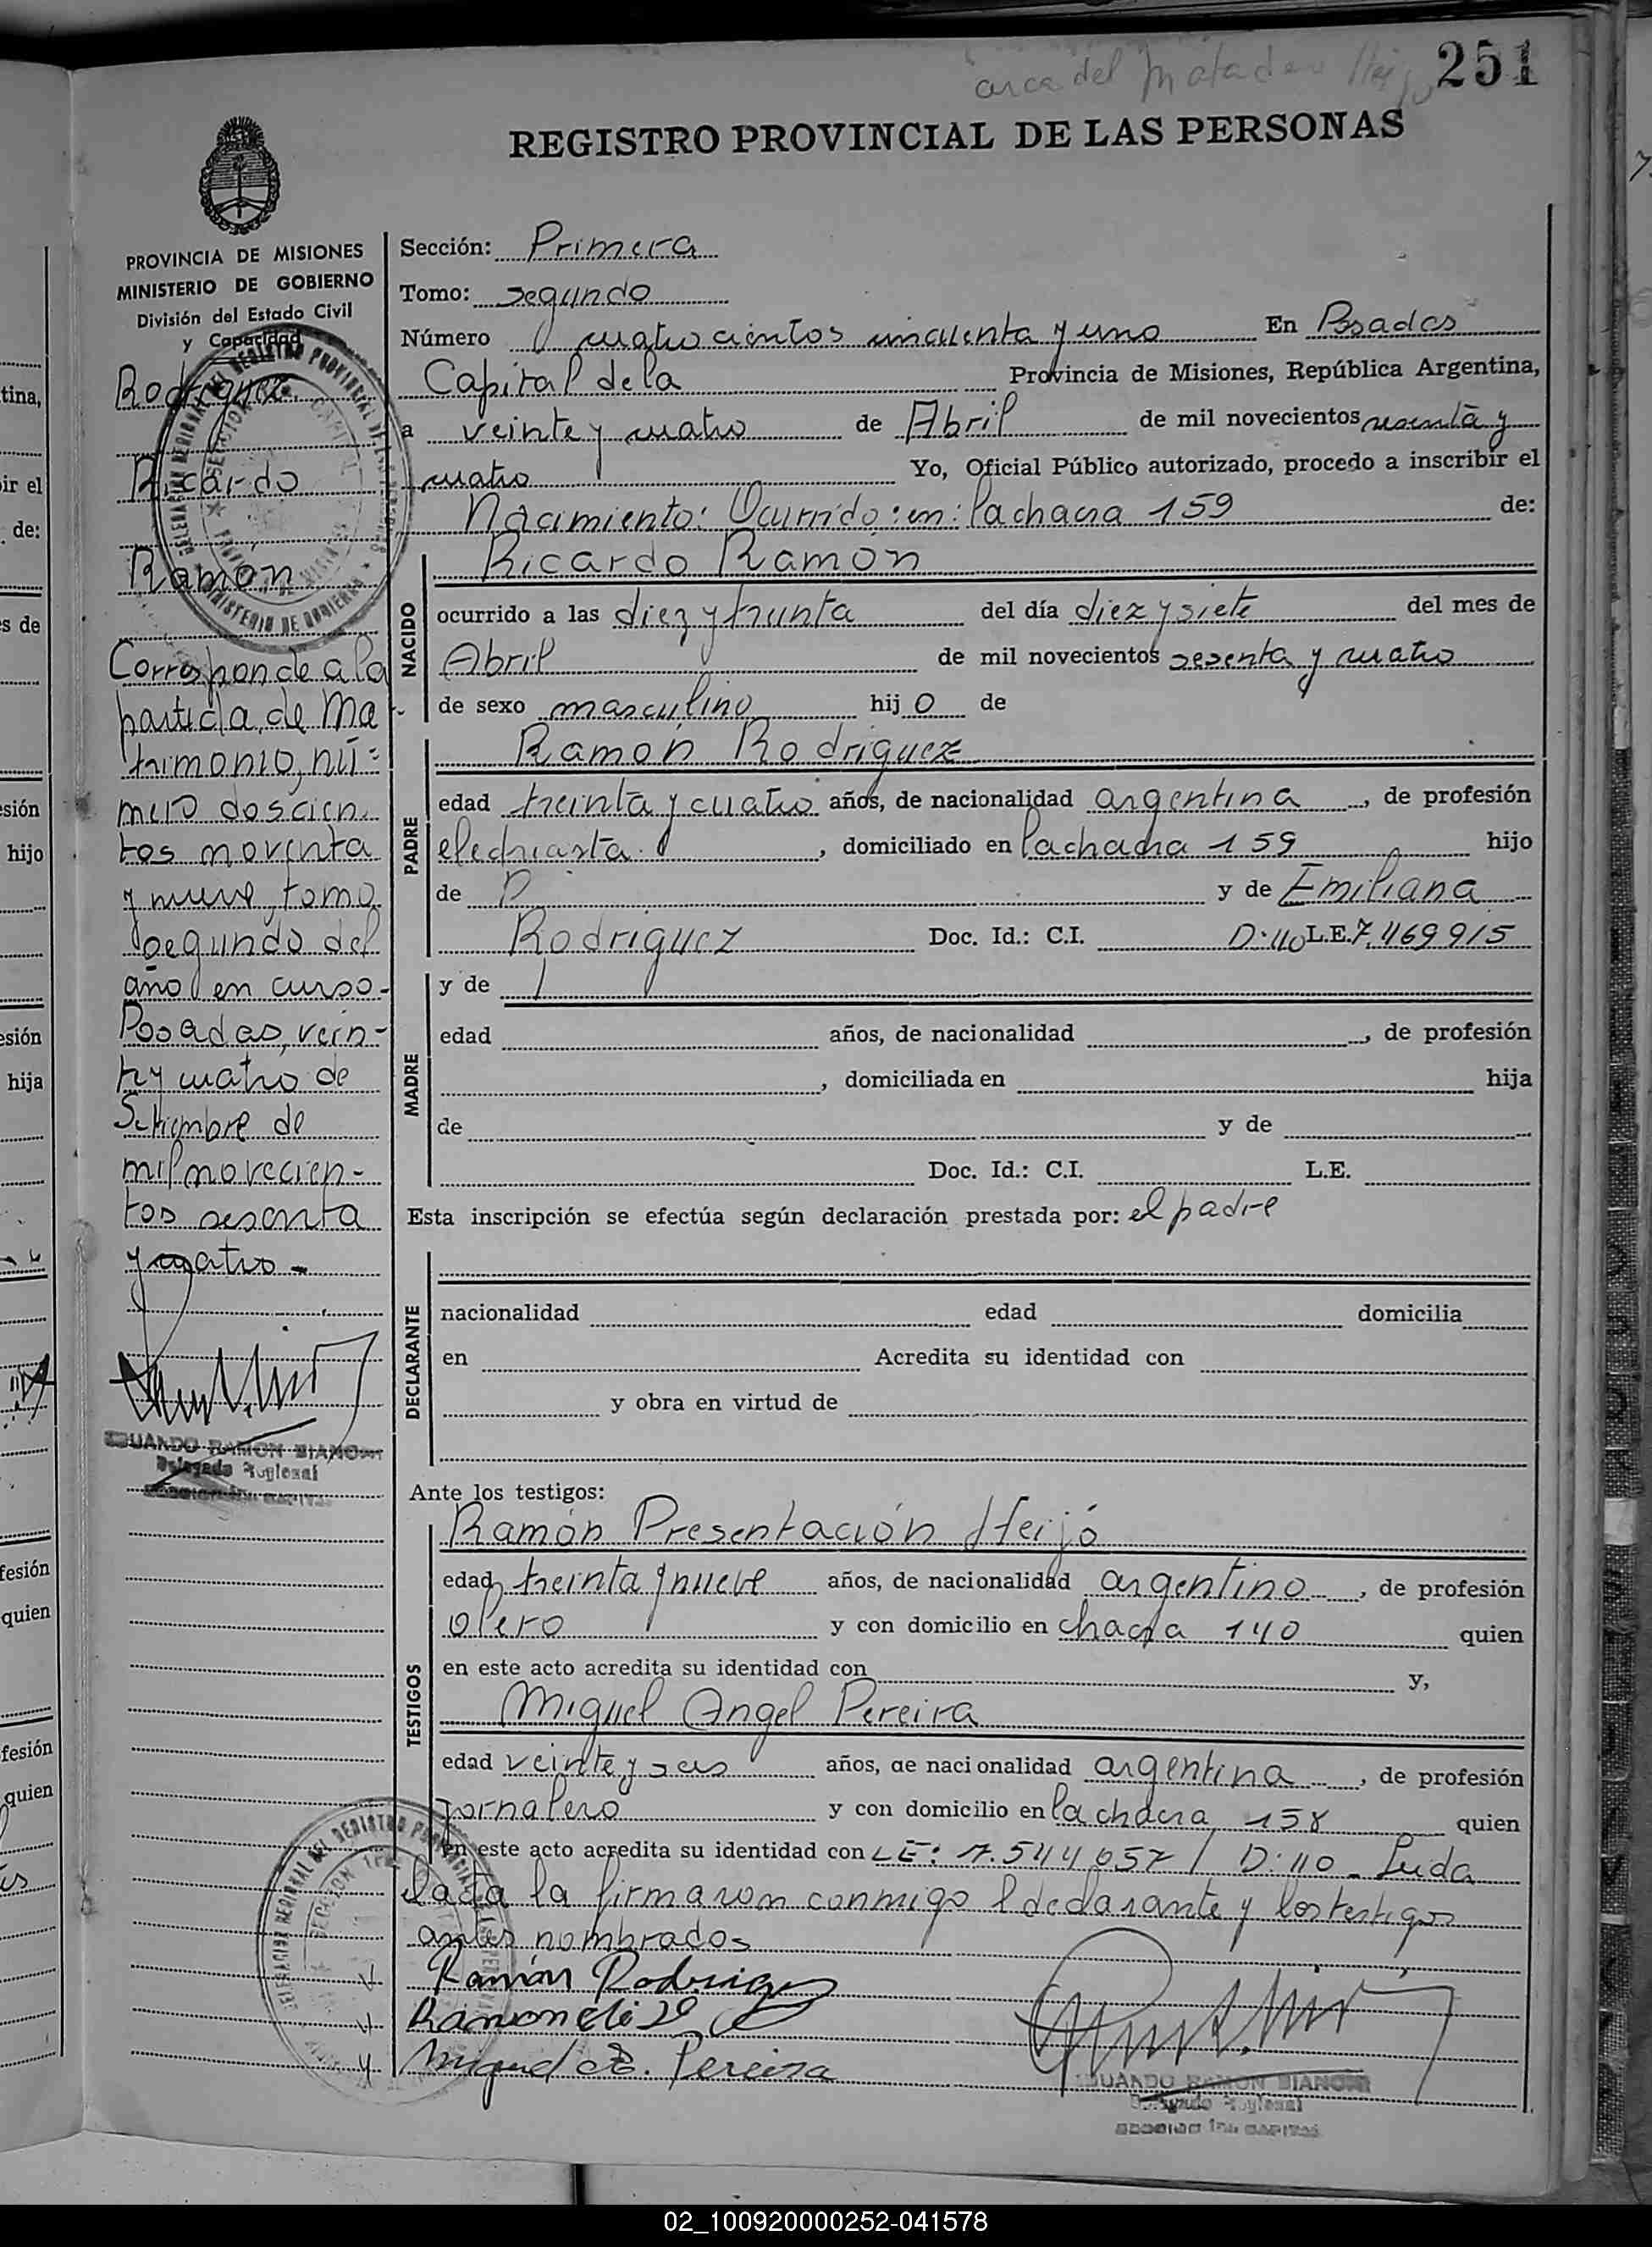 251
arca del matadero
REGISTRO PROVINCIAL DE LAS PERSONAS
PROVINCIA DE MISIONES
MINISTERIO DE GOBIERNO
División del Estado Civil
y Capacidad
Rodriguez
Ricardo
Ramón
Corresponde a la
partida de Ma
trimonio, nú=
mero doscien
tos noventa
y nueve, tomo
segundo del
año en curso-
Posadas, vein-
ti y cuatro de
Setiembre de
mil novecien-
tos sesenta
y cuatro -
EDUARDO RAMON BIANCHI
Delegado Regional
Sección: Primera
Tomo: segundo
Número cuatrocientos cincuenta y uno En Posadas
Capital de la Provincia de Misiones, República Argentina,
a veinte y cuatro de Abril de mil novecientos sesenta y
cuatro Yo, Oficial Público autorizado, procedo a inscribir el
Nacimiento: Ocurrido: en: la chacra 159 de:
NACIDO
Ricardo Ramón
ocurrido a las diez y treinta del día diez y siete del mes de
Abril de mil novecientos sesenta y cuatro
de sexo masculino hij o de
PADRE
Ramón Rodriguez
edad treinta y cuatro años, de nacionalidad argentina, de profesión
electricista, domiciliado en la chacra 159 hijo
de y de Emiliana
Rodriguez Doc. Id.: C.I. D:110 L.E. 7.469915
MADRE
y de
edad años, de nacionalidad , de profesión
, domiciliada en hija
de y de
Doc. Id.: C.I. L.E.
Esta inscripción se efectúa según declaración prestada por: el padre
DECLARANTE
nacionalidad edad domicilia
en Acredita su identidad con
y obra en virtud de
Ante los testigos:
TESTIGOS
Ramón Presentación Heijó
edad treinta y nueve años, de nacionalidad argentino, de profesión
olero y con domicilio en chacra 140 quien
en este acto acredita su identidad con y,
Miguel Angel Pereira
edad veinte y seis años, de nacionalidad argentina, de profesión
jornalero y con domicilio en la chacra 158 quien
en este acto acredita su identidad con LE: 7.544057 D:110 - Leida
el acta la firmaron conmigo el declarante y los testigos
antes nombrados
Ramón Rodriguez
Ramon
Miguel A. Pereira
EDUARDO RAMON BIANCHI
Delegado Regional
SECCION 1ra. CAPITAL
02_100920000252-041578